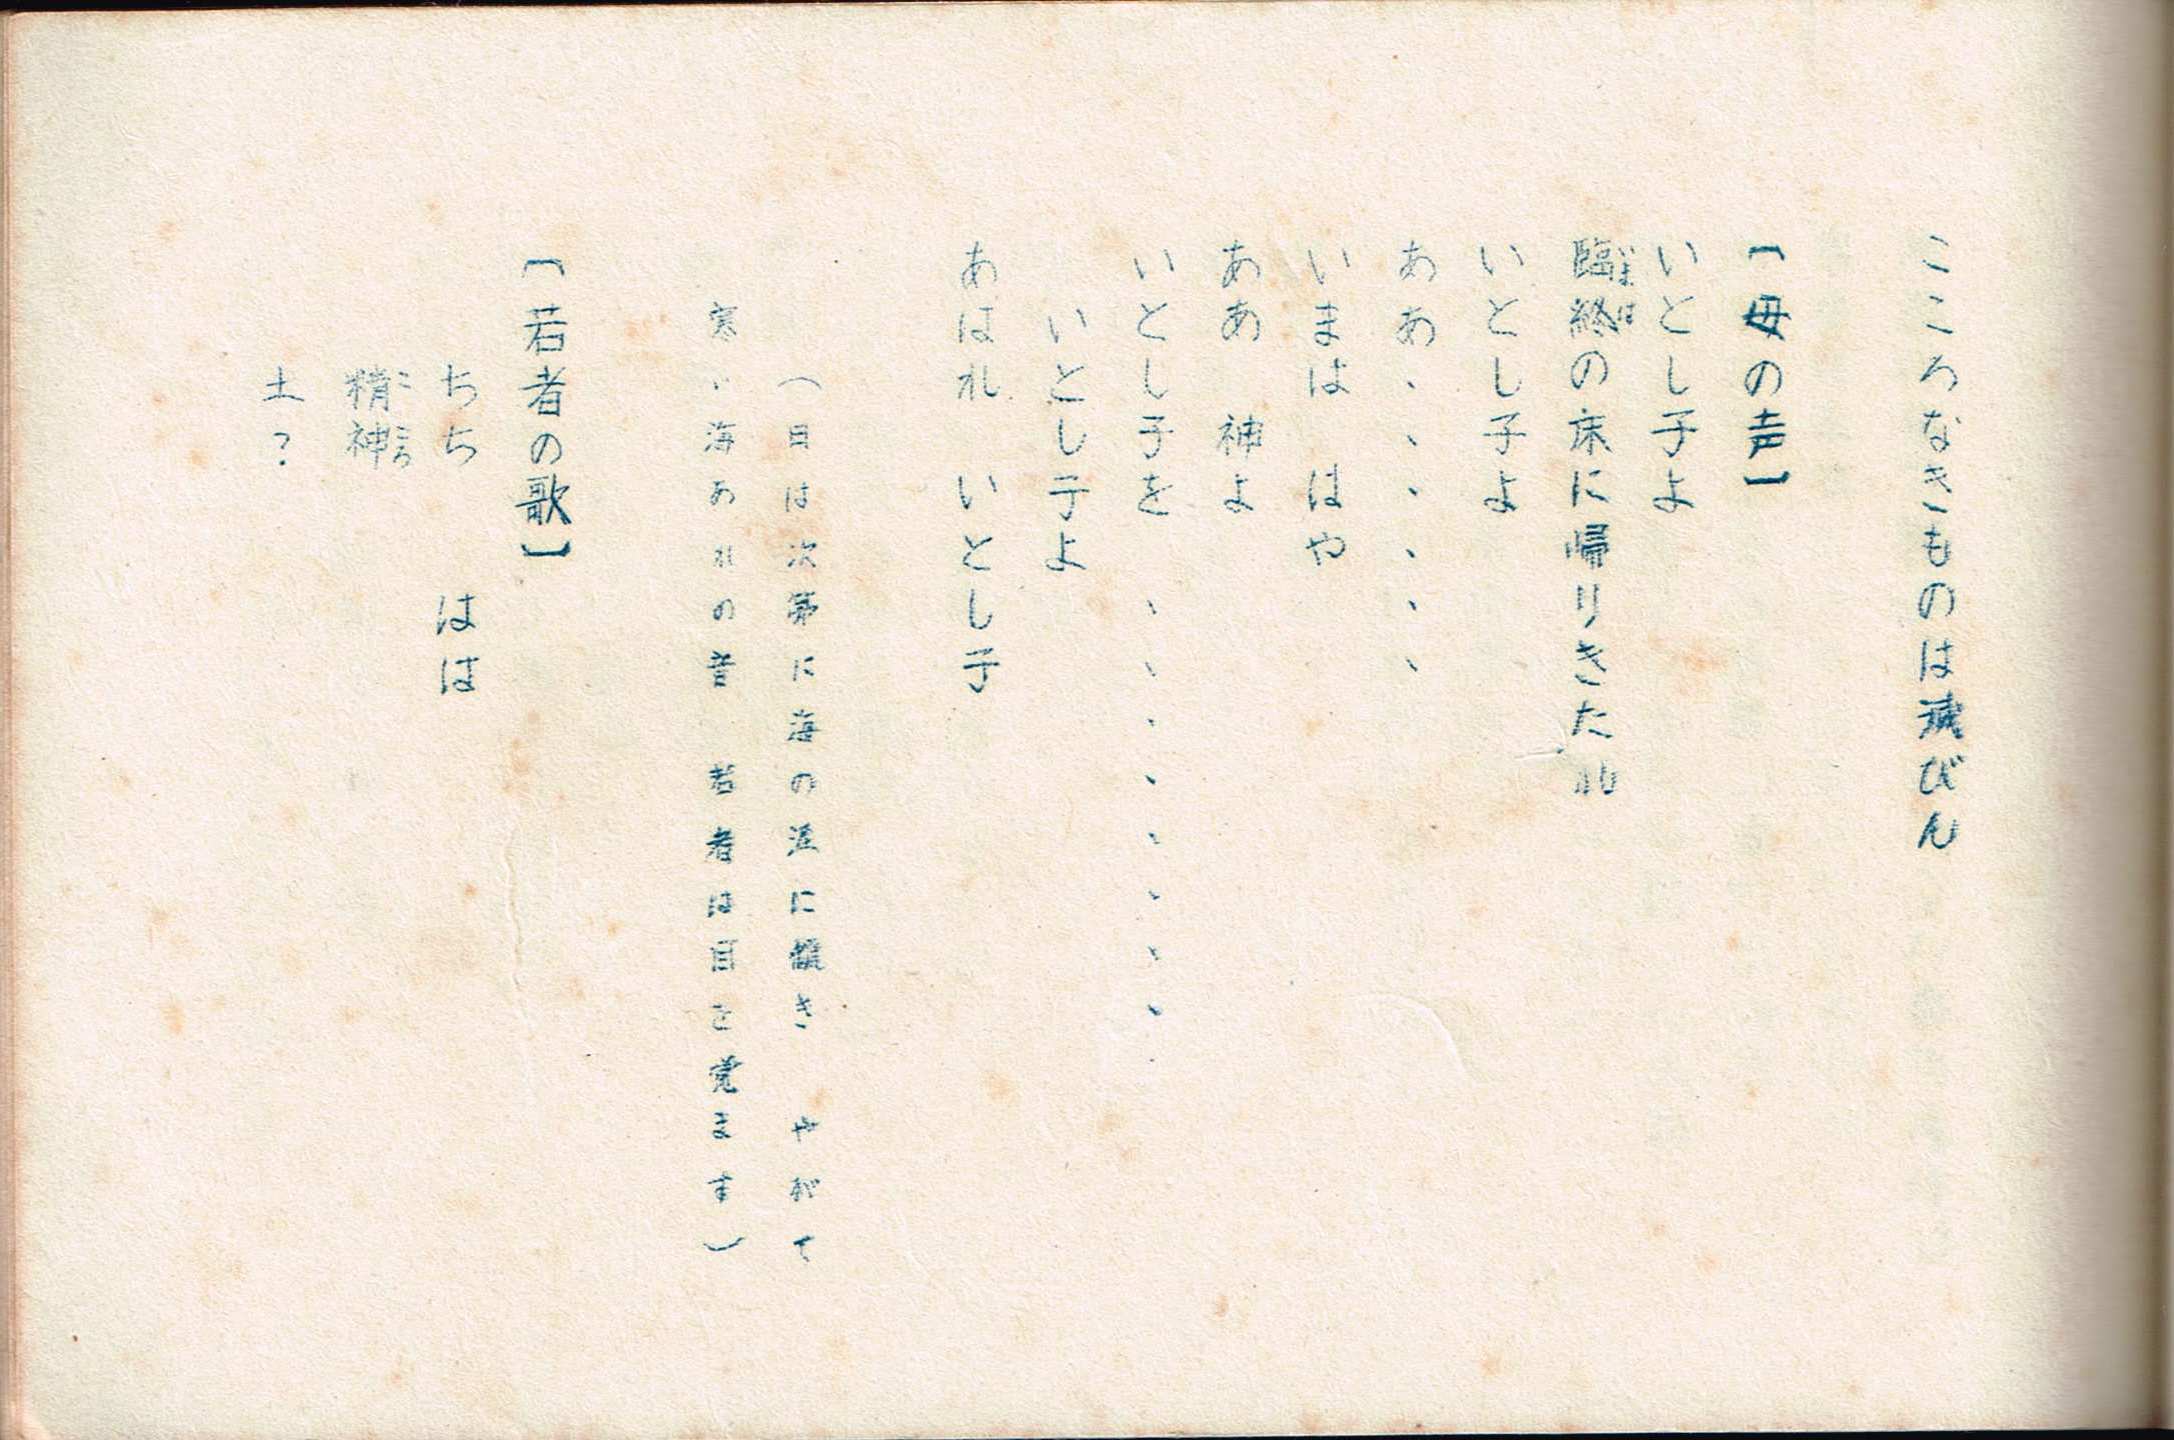 こころなきものは滅びん
〔母の声〕
いとし子よ
臨終の床に帰りきたれ
いまは
いとし子よ
ああ、、、、、、
いまは はや
ああ 神よ
いとし子を 、、、、、、、、、
いとし子よ
あはれ いとし子
(日は次第に海の涯に傾き やがて
寒い海あれの音 若者は目を覚ます)
〔若者の歌〕
ちち はは
精神
こころ
土?